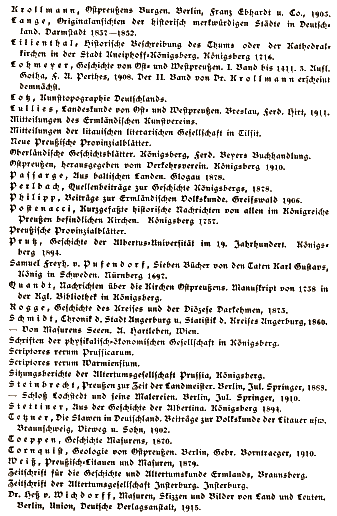 Krollmann, Ostpreußens Burgen. Berlin, Franz Ebhardt u. Co., 1905.
Lange, Originalansichten der historisch merkwürdigen Städte in Deutsch-
land. Darmstadt 1837—1852.
Lilienthal, Historische Beschreibung des Thums oder der Kathedral-
kirchen in der Stadt Kneiphoff-Königsberg. Königsberg 1716.
Lohmeyer, Geschichte von Ost- und Westpreußen. I. Band bis 1411. 3. Aufl.
Gotha, F. A. Perthes, 1908. Der II. Band von Dr. Krollmann erscheint
demnächst.
Lotz, Kunsttopographie Deutschlands.
Lullies, Landeskunde von Ost- und Westpreußen. Breslau, Ferd. Hirt, 1911.
Mitteilungen des Ermländischen Kunstvereins.
Mitteilungen der litauischen literarischen Gesellschaft in Tilsit.
Neue Preußische Provinzialblätter.
Oberländische Geschichtsblätter. Königsberg, Ferd. Beyers Buchhandlung.
Ostpreußen, herausgegeben vom Verkehrsverein. Königsberg 1910.
Passarge, Aus baltischen Landen. Glogau 1878.
Perlbach, Quellenbeiträge zur Geschichte Königsbergs, 1878.
Philipp, Beiträge zur Ermländischen Volkskunde. Greifswald 1906.
Pastenacci, Kurzgefaßte historische Nachrichten von allen im Königreiche
Preußen befindlichen Kirchen. Königsberg 1757.
Preußische Provinzialblätter.
Prutz, Geschichte der Albertus-Universität im 19. Jahrhundert. Königs-
berg 1894.
Samuel Freyh. v. Pufendorf, Sieben Bücher von den Taten Karl Gustavs,
König in Schweden. Nürnberg 1697.
Quandt, Nachrichten über die Kirchen Ostpreußens. Manuskript von 1738 in
der Kgl. Bibliothek in Königsberg.
Rogge, Geschichte des Kreises und der Diözese Darkehmen, 1873.
Schmidt, Chronik d. Stadt Angerburg u. Statistik d. Kreises Angerburg, 1860.
— Von Masurens Seeen. A. Hartleben, Wien.
Schriften der physikalisch-ökonomischen Gesellschaft in Königsberg.
Scriptores rerum Prussicarum.
Scriptores rerum Warmiensium.
Sitzungsberichte der Altertumsgesellschaft Prussia, Königsberg.
Steinbrecht, Preußen zur Zeit der Landmeister. Berlin, Jul. Springer, 1888.
— Schloß Lochstedt und seine Malereien. Berlin, Jul. Springer, 1910.
Stettiner, Aus der Geschichte der Albertina. Königsberg 1894.
Tetzner, Die Slawen in Deutschland. Beiträge zur Volkskunde der Litauer usw.
Braunschweig, Vieweg u. Sohn, 1902.
Toeppen, Geschichte Masurens, 1870.
Tornquist, Geologie von Ostpreußen. Berlin, Gebr. Borntraeger, 1910.
Weiß, Preußisch-Litauen und Masuren, 1879.
Zeitschrift für die Geschichte und Altertumskunde Ermlands, Braunsberg.
Zeitschrift der Altertumsgesellschaft Insterburg. Insterburg.
Dr. Heß v. Wichdorff, Masuren, Skizzen und Bilder von Land und Leuten.
Berlin, Union, Deutsche Verlagsanstalt, 1915.